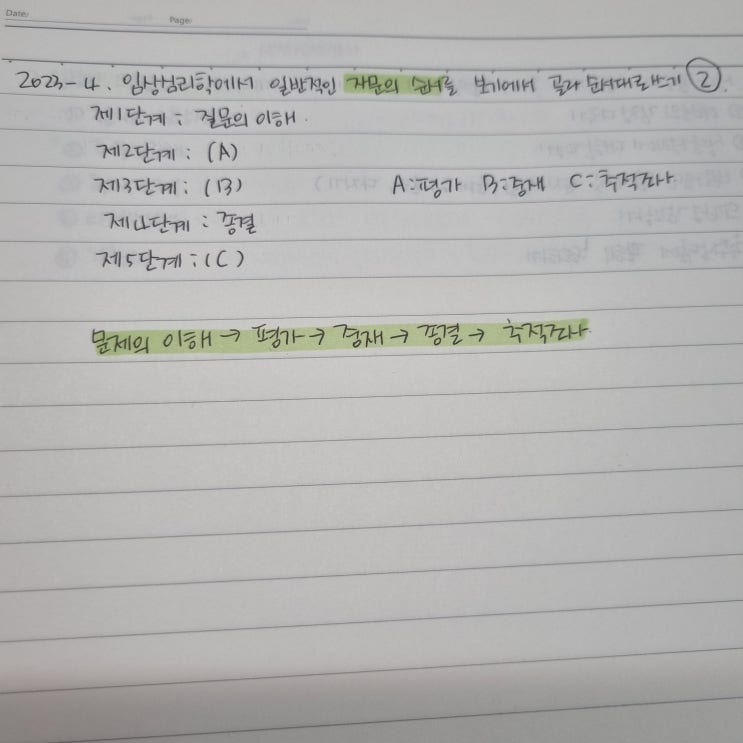 Date:
Page:
2023-4. 임상심리학에서 일반적인 자문의 순서를 보기에서 골라 순서대로 쓰기 ②
제1단계 : 질문의 이해.
제2단계 : (A)
제3단계 : (B) A:평가 B:중재 C:추적조사
제4단계 : 종결
제5단계 : (C)
문제의 이해 → 평가 → 중재 → 종결 → 추적조사.